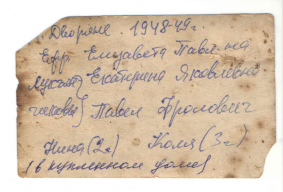 Дворяне. 1948-49г.
Елизавета Павл-на
Екатерина Яковлевна
Павел Фролович
Нина (2г) Коля (3г)
(в купленном доме)